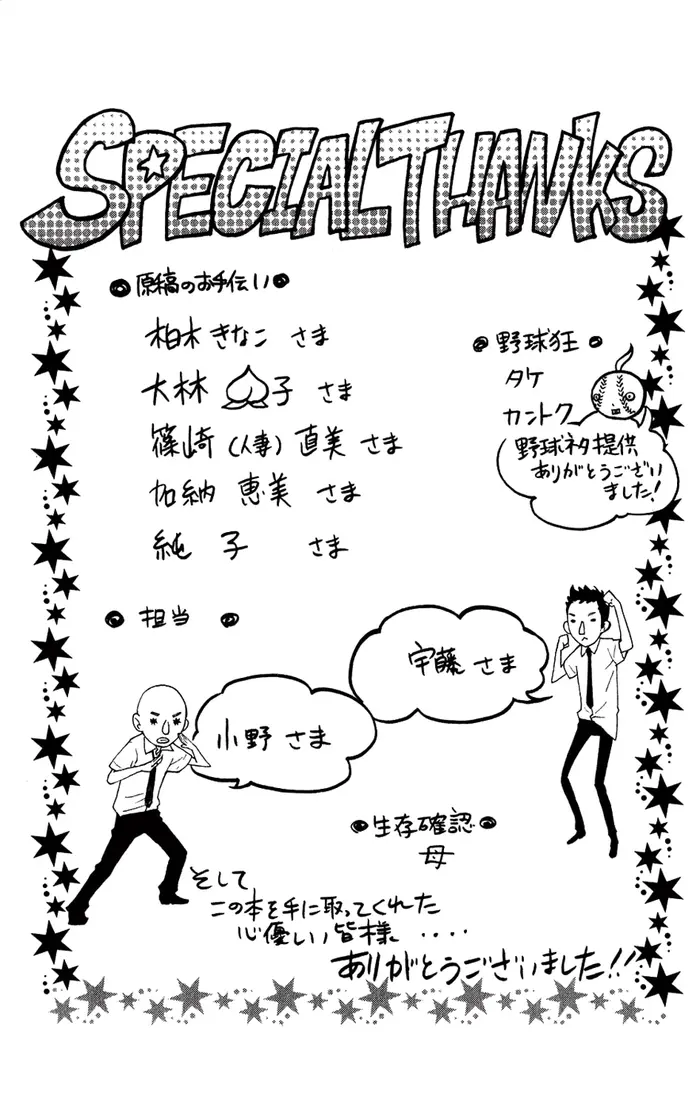 SPECIAL THANKS
原稿のお手伝い
柏木きなこ さま
大林 子 さま
篠崎(人妻)直美 さま
加納 恵美 さま
純 子 さま
野球狂
タケ
カントク
野球ネタ提供
ありがとうござい
ました!
担当
宇藤さま
小野さま
生存確認
母
そして
この本を手に取ってくれた
心優しい皆様....
ありがとうございました!!